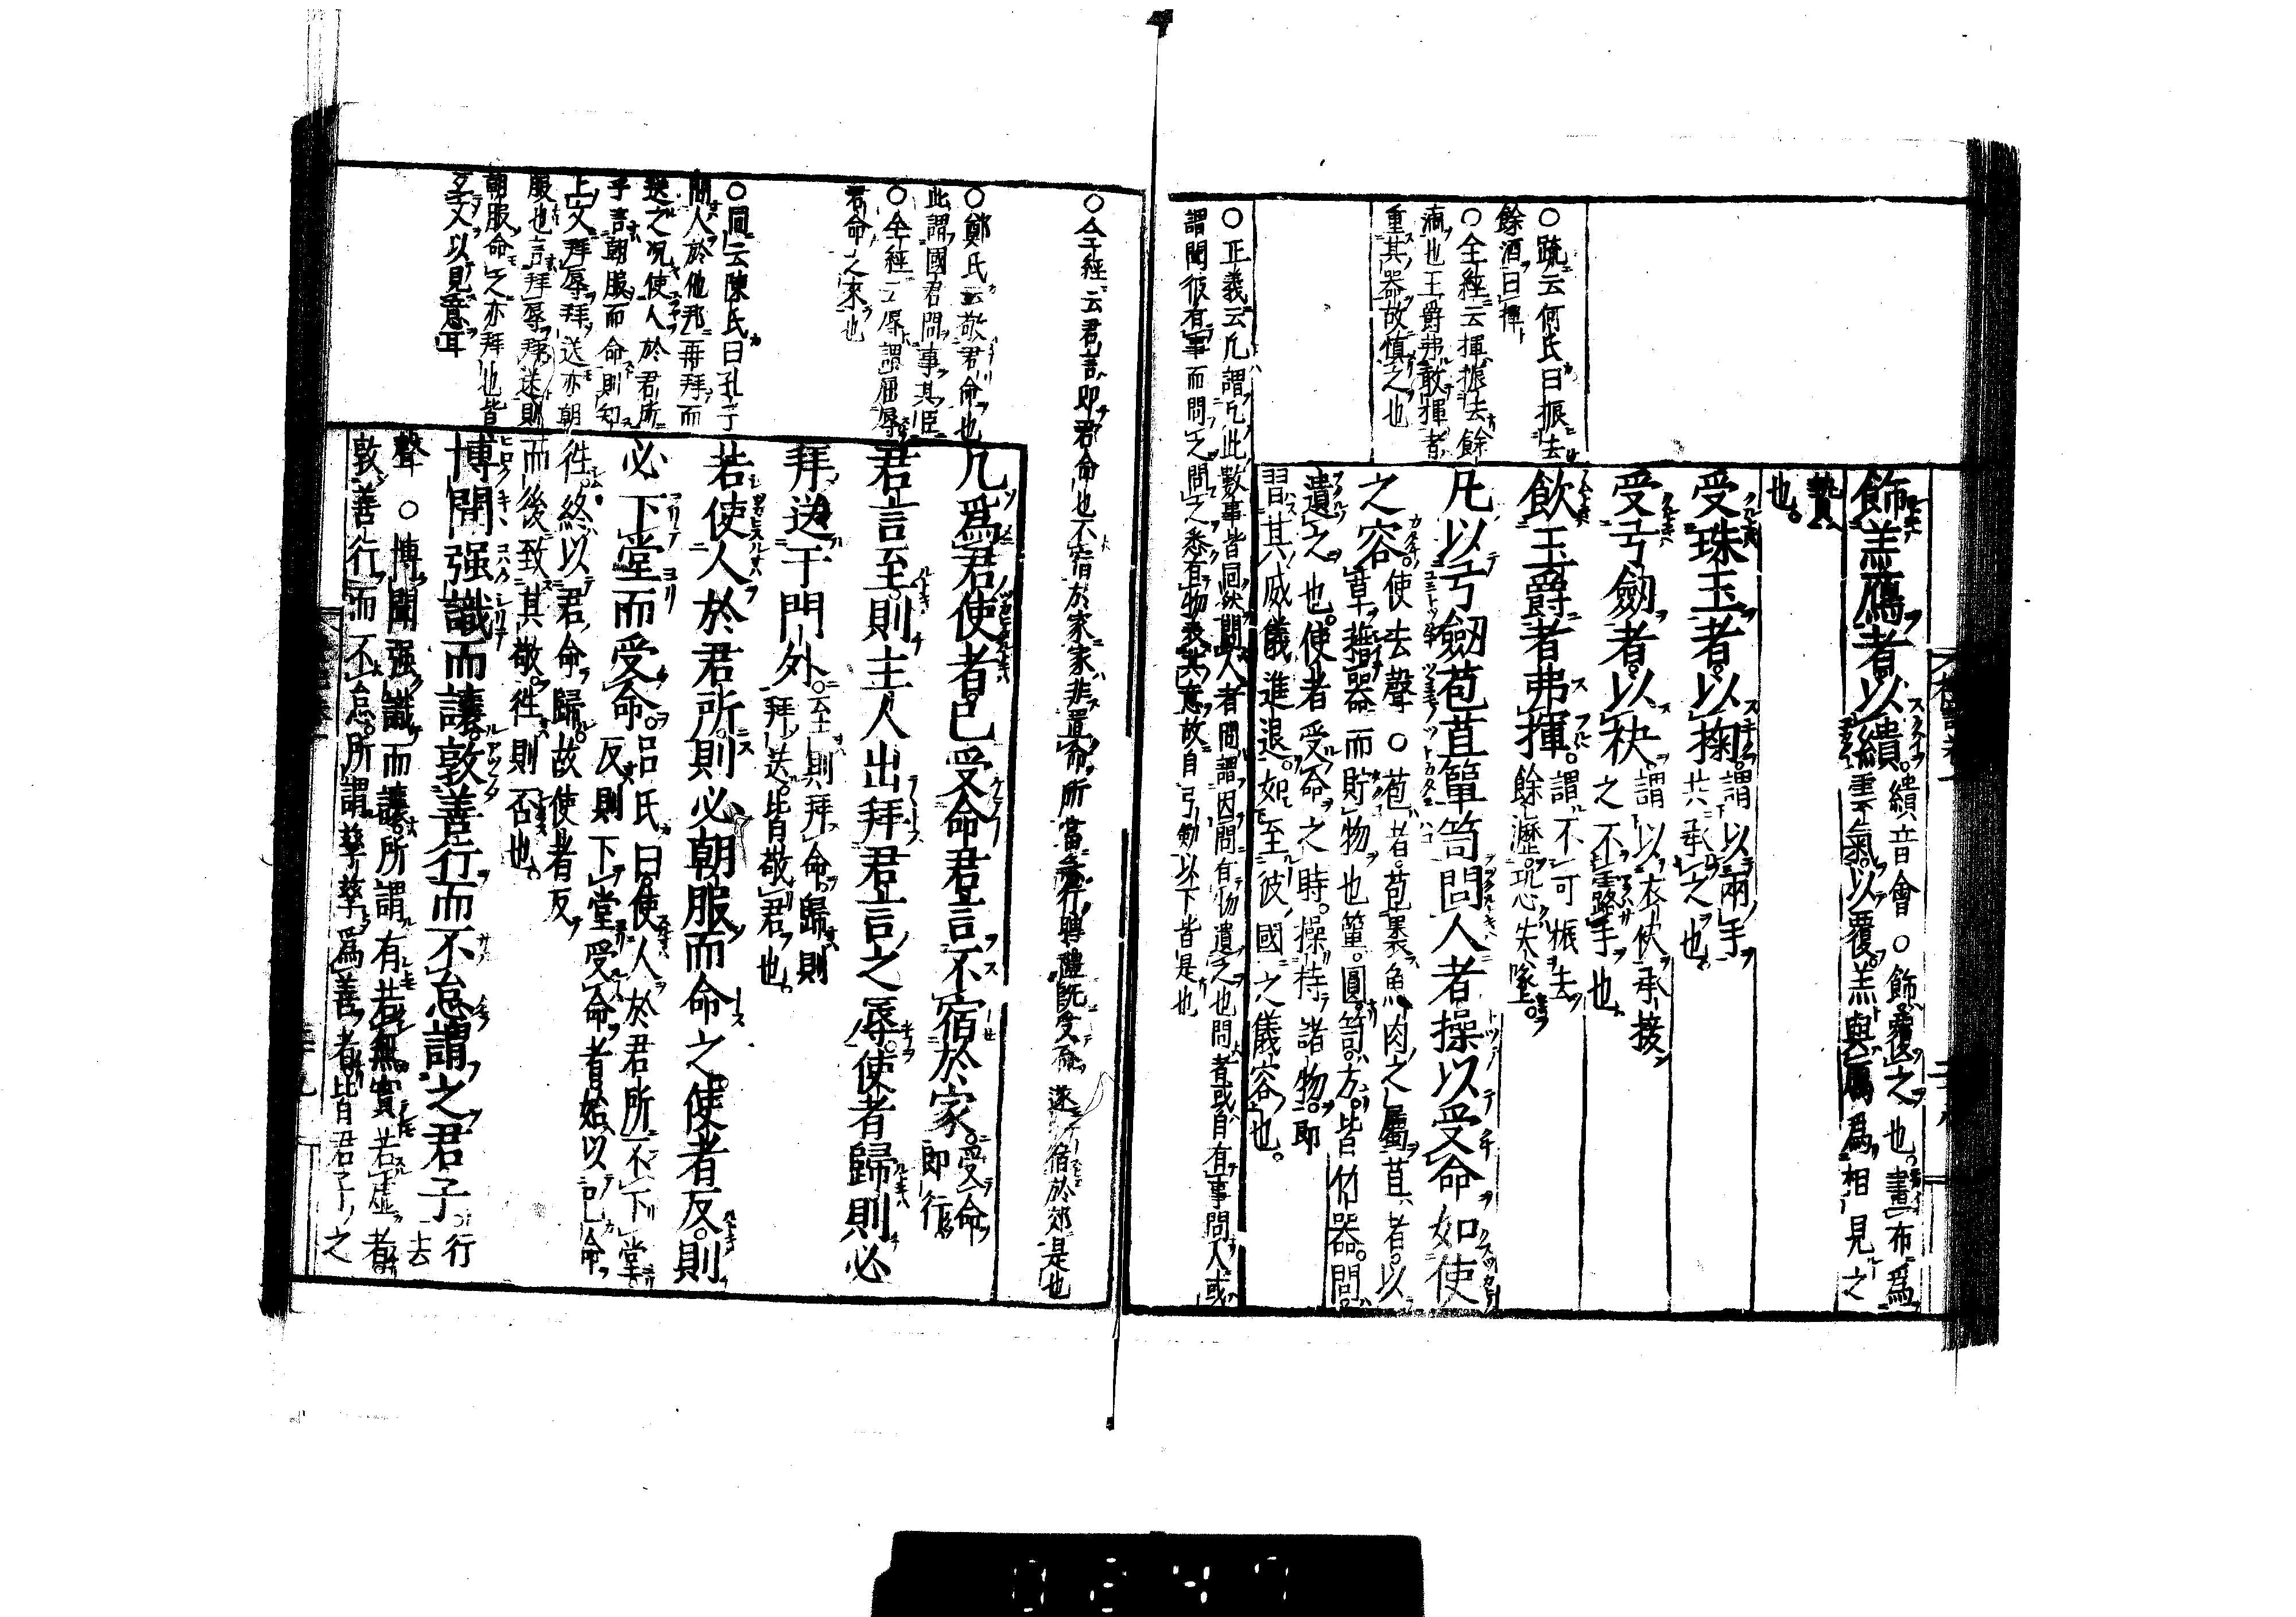 飾羔鴈者以繢繢音會○飾覆之也畫布爲
雲氣以覆羔與鴈爲相見之
贄
也
受珠玉者以掬謂以兩手
共承之也
受弓劒者以袂謂以衣袂承接
之不露手也
飲玉爵者弗揮謂不可振去
餘瀝恐失墜
凡以弓劒苞苴簞笥問人者操以受命如使
之容使去聲○苞者苞裹魚肉之屬苴者以
草藉器而貯物也簞圓笥方皆竹器問
遺之也使者受命之時操持諸物即
習其威儀進退如至彼國之儀容也
○疏云何氏曰振去
餘酒曰揮
○全經云揮振去餘
滴也玉爵弗敢揮者
重其器故愼之也
○正義云凡謂凡此數事皆同然問人者問謂因問有物遺之也問者或自有事問人或
謂聞彼有事而問之問之悉有物表其意故自弓劒以下皆是也
○全經云君言即君命也不宿於家家非置命所當矣行聘禮既受命遂行宿於郊是也
凡爲君使者已受命君言不宿於家受命
即行
君言至則主人出拜君言之辱使者歸則必
拜送于門外至則拜命歸則
拜送皆敬君也
若使人於君所則必朝服而命之使者反則
必下堂而受命呂氏曰使人於君所不下堂
反則下堂受命者始以己命
徃終以君命歸故使者反
而後致其敬徃則否也
博聞强識而讓敦善行而不怠謂之君子行
去
聲○博聞强識而讓所謂有若無實若虛者
敦善行而不怠所謂孳孳爲善者皆君子之
○鄭氏云敬君命也
此謂國君問事其臣
○全經云辱謂屈辱
君命之來也
○同云陳氏曰孔子
問人於他邦再拜而
送之况使人於君所
乎言朝服而命則知
上文拜辱拜送亦朝
服也言拜辱拜送則
朝服命之亦拜也皆
互文以見意耳